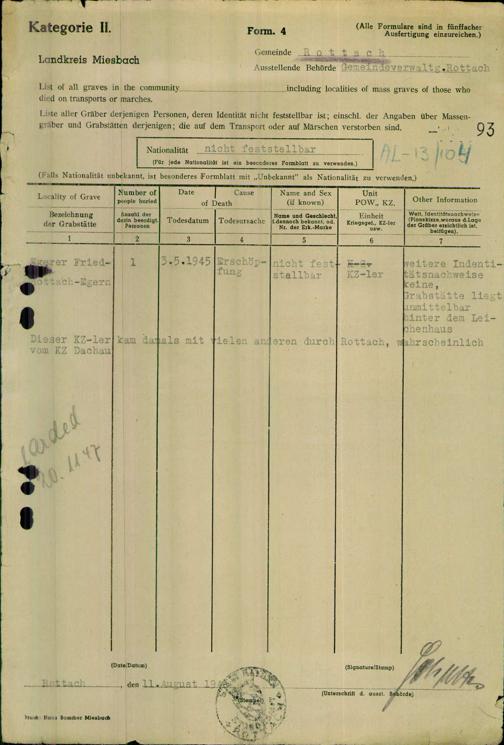 Kategorie II.
Form. 4
(Alle Formulare sind in fünffacher
Ausfertigung einzureichen.)
Landkreis Miesbach
Gemeinde Rottach
Ausstellende Behörde Gemeindeverwaltg.Rottach
List of all graves in the community including localities of mass graves of those who
died on transports or marches.
Liste aller Gräber derjenigen Personen, deren Identität nicht feststellbar ist; einschl. der Angaben über Massen-
gräber und Grabstätten derjenigen; die auf dem Transport oder auf Märschen verstorben sind.
93
Nationalität nicht feststellbar
(Für jede Nationalität ist ein besonderes Formblatt zu verwenden.)
AL-13/104
(Falls Nationalität unbekannt, ist besonderes Formblatt mit „Unbekannt" als Nationalität zu verwenden.)
Locality of Grave
Number of
people buried
Date
Cause
of Death
Name and Sex
(if known)
Unit
POW., KZ.
Other Information
Bezeichnung
der Grabstätte
Anzahl der
darin beerdigt.
Personen
Todesdatum
Todesursache
Name und Geschlecht,
Nr. der Erk.-Marke
Einheit
Kriegsgef., KZ-ler
usw.
Weit. Identitätsnachweise
(Planskizze, woraus d. Lage
der Gräber ersichtlich ist,
beifügen).
1 2 3 4 5 6 7
Egerer Fried-
Rottach-Egern
1
3.5.1945
Erschöp-
fung
nicht fest-
stellbar
KZ-ler
weitere Indenti-
tätsnachweise
keine,
Grabstätte liegt
unmittelbar
hinter dem Lei-
chenhaus
Dieser KZ-ler kam damals mit vielen anderen durch Rottach, wahrscheinlich
vom KZ Dachau
carded
20.11.47
(Date/Datum)
(Signature/Stamp)
Rottach, den 11.August
(Unterschrift d. ausst. Behörde)
Druck: Hans Bommer Miesbach